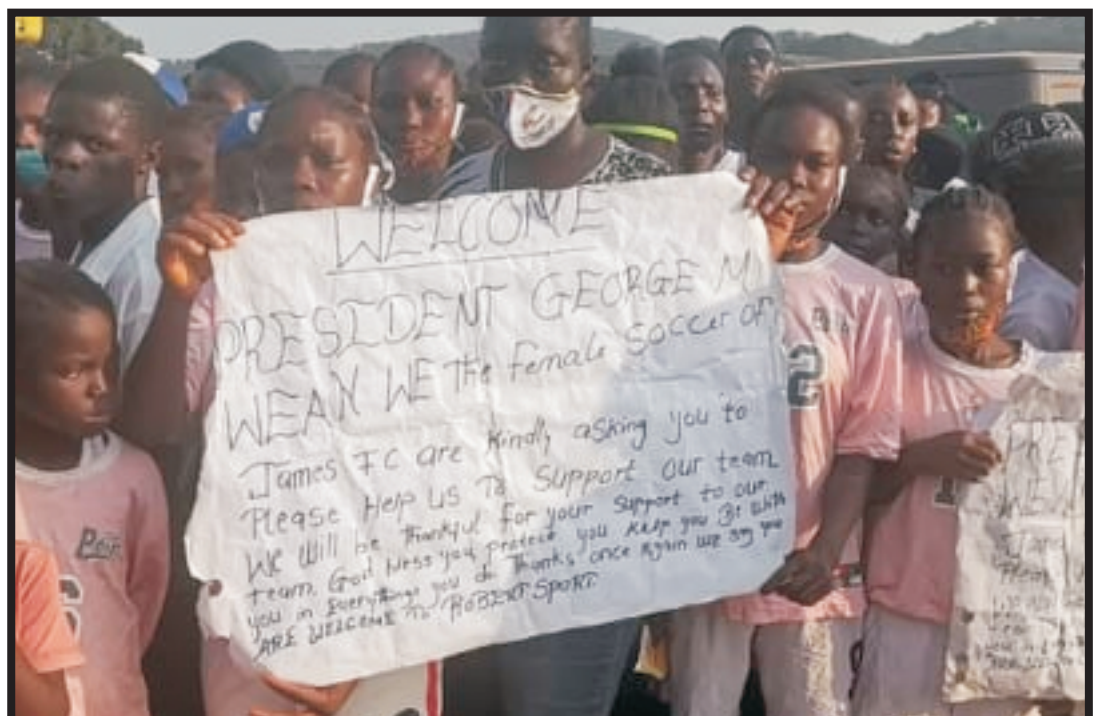 WELCOME
PRESIDENT GEORGE M
WEAH WE The female Soccer OF
James FC are kindly asking you to
Please Help US To Support our team
We will be thankful for your support to our
team. God bless you, protect you keep you Be with
you in Everythings you do Thanks once again we say you
ARE WELCOME To ROBERTSPORT
2
PRE
WE
Jame
Pleas